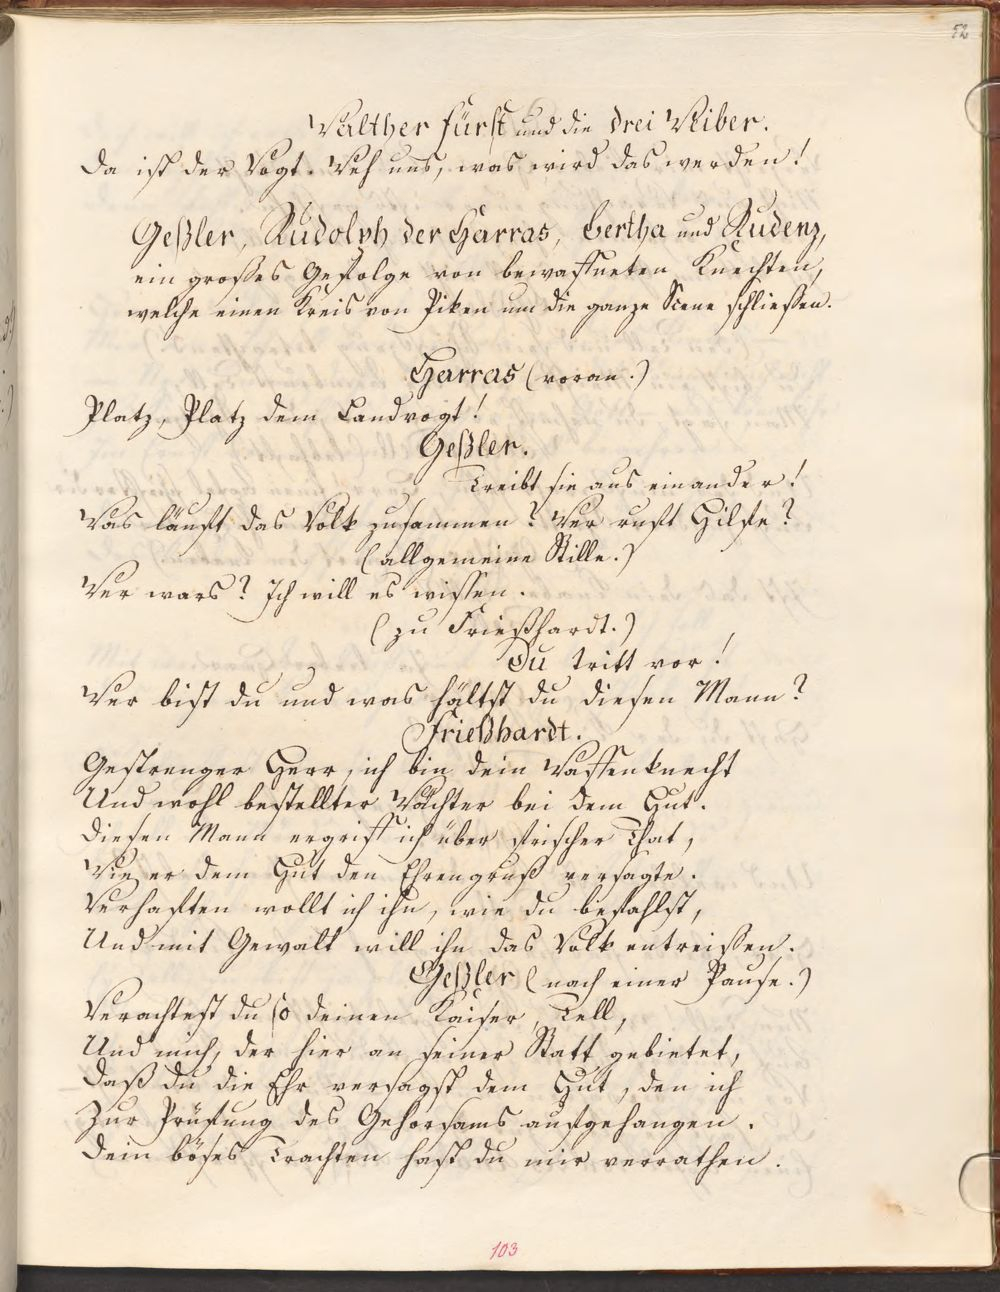 52
Walther Fürst und die drei Weiber.
Da ist der Vogt. Weh uns, was wird das werden!
Geßler, Rudolph der Harras, Bertha und Rudenz,
ein großes Gefolge von bewaffneten Knechten,
welche einen Kreis von Piken um die ganze Scene schließen.
Harras (voran.)
Platz, Platz dem Landvogt!
Geßler.
Treibt sie aus einander!
Was läuft das Volk zusammen? Wer ruft Hilfe?
(allgemeine Stille.)
Wer wars? Ich will es wissen.
(zu Frießhardt.)
Du tritt vor!
Wer bist du und was hältst du diesen Mann?
Frießhardt.
Gestrenger Herr, ich bin dein Waffenknecht
Und wohl bestellter Wächter bei dem Hut.
Diesen Mann ergriff ich über frischer That,
Wie er dem Hut den Ehrengruß versagte.
Verhaften wollt ich ihn, wie du befahlst,
Und mit Gewalt will ihn das Volk entreißen.
Geßler (nach einer Pause.)
Verachtest du so deinen Kaiser, Tell,
Und mich, der hier an seiner Statt gebietet,
Daß du die Ehr versagst dem Hut, den ich
Zur Prüfung des Gehorsams aufgehangen.
Dein böses Trachten hast du mir verrathen.
103